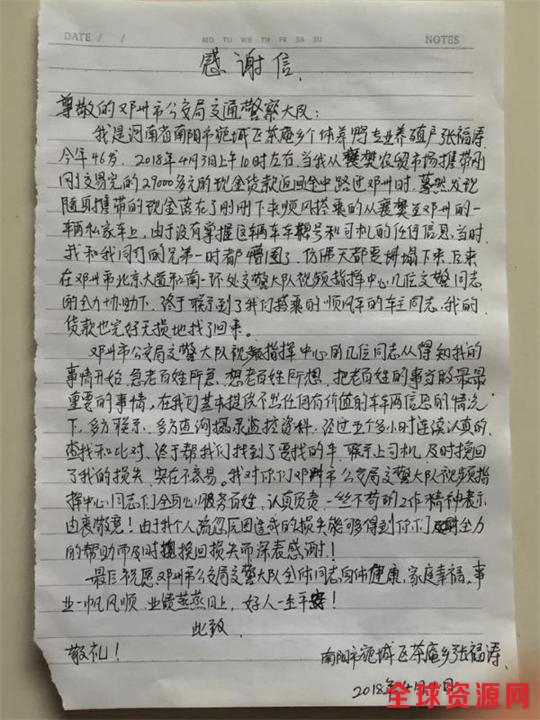 DATE / /
MO TU WE TH FR SA SU
NOTES
感谢信
尊敬的邓州市公安局交通警察大队:
我是河南省南阳市宛城区茶庵乡个体养鸭专业养殖户张福涛
今年46岁。2018年4月3日上午10时左右,当我从襄樊农贸市场携带刚
刚交易完的27000多元的现金货款返回途中路过邓州时,蓦然发现
随身携带的现金落在了刚刚下来顺风搭乘的从襄樊至邓州的一
辆私家车上,由于没有掌握这辆车车牌号和司机的任何信息,当时
我和我同行的兄弟一时都懵圈了,仿佛天都要塌下来。后来
在邓州市北京大道和南一环处交警大队视频指挥中心几位交警同志
的全力协助下,终于联系到了我们搭乘的顺风车的车主同志,我的
货款也完好无损地找了回来。
邓州市公安局交警大队视频指挥中心的几位同志从得知我的
事情开始,急老百姓所急,想老百姓所想,把老百姓的事当成最最
重要的事情,在我们基本提供不出任何有价值的车辆信息的情况
下,多方联系、多方查询摄录监控资料,经过五个多小时连续认真的
查找和比对,终于帮我们找到了要找的车,联系上司机,及时挽回
了我的损失,实在不容易。我对你们邓州市公安局交警大队视频指
挥中心同志们全身心服务百姓,认真负责,一丝不苟的工作精神表示
由衷敬意!由于我个人疏忽原因造成的损失能够得到你们及时全力
的帮助而及时挽回损失而深表感谢!
最后祝愿邓州市公安局交警大队全体同志身体健康,家庭幸福,事
业一帆风顺,业绩蒸蒸日上,好人一生平安!
此致
敬礼!
南阳市宛城区茶庵乡张福涛
2018年4月日
全球资源网